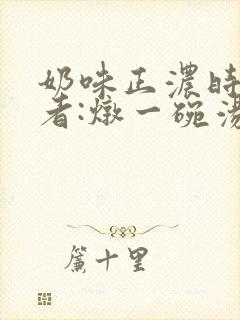 奶味正濃時
者:燉一碗湯
簾十里